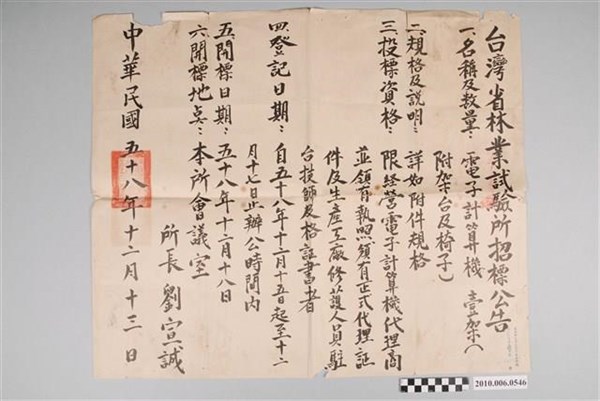 台灣省林業試驗所招標公告
一、名稱及数量：電子計算機 壹架（
附架台及椅子）
二、規格及説明：詳如附件規格
三、投標資格：限経営電子計算機代理商
並領有執照領有正式代理証
件及生產工廠修護人員駐
台技師及格証書者
四、登記日期：自五十八年十二月十五日起至十二
月十七日止辦公時間內
五、開標日期：五十八年十二月十八日
六、開標地点：本所會議室
所長 劉宣誠
中華民國五十八年十二月十三日
2010.006.0546